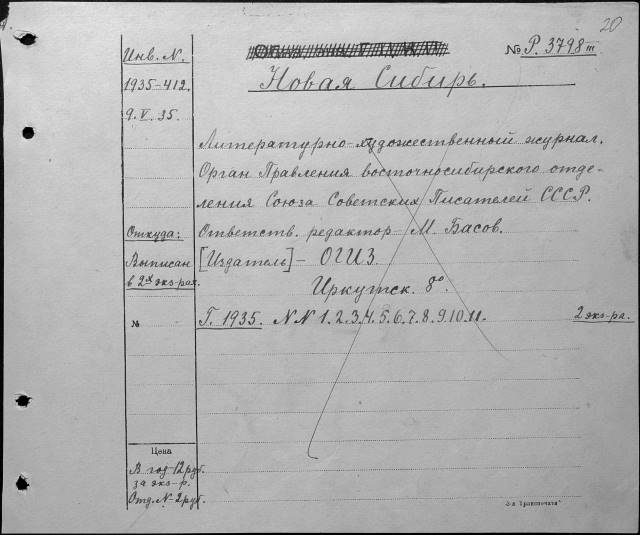 20
Инв. N.
№ Р. 3798 III
1935-412.
Новая Сибирь.
9. V. 35.
Литературно-художественный журнал.
Орган Правления восточносибирского отде-
ления Союза Советских Писателей СССР.
Откуда:
Ответств. редактор - М. Басов.
Выписан
[Издатель] - ОГИЗ.
в 2х экз-рах.
Иркутск. 8°.
№
Г. 1935. NN 1.2.3.4.5.6.7.8.9.10.11.
2 экз-ра.
Цена
В год 12 руб.
за экз-р.
Отд. N - 2 руб.